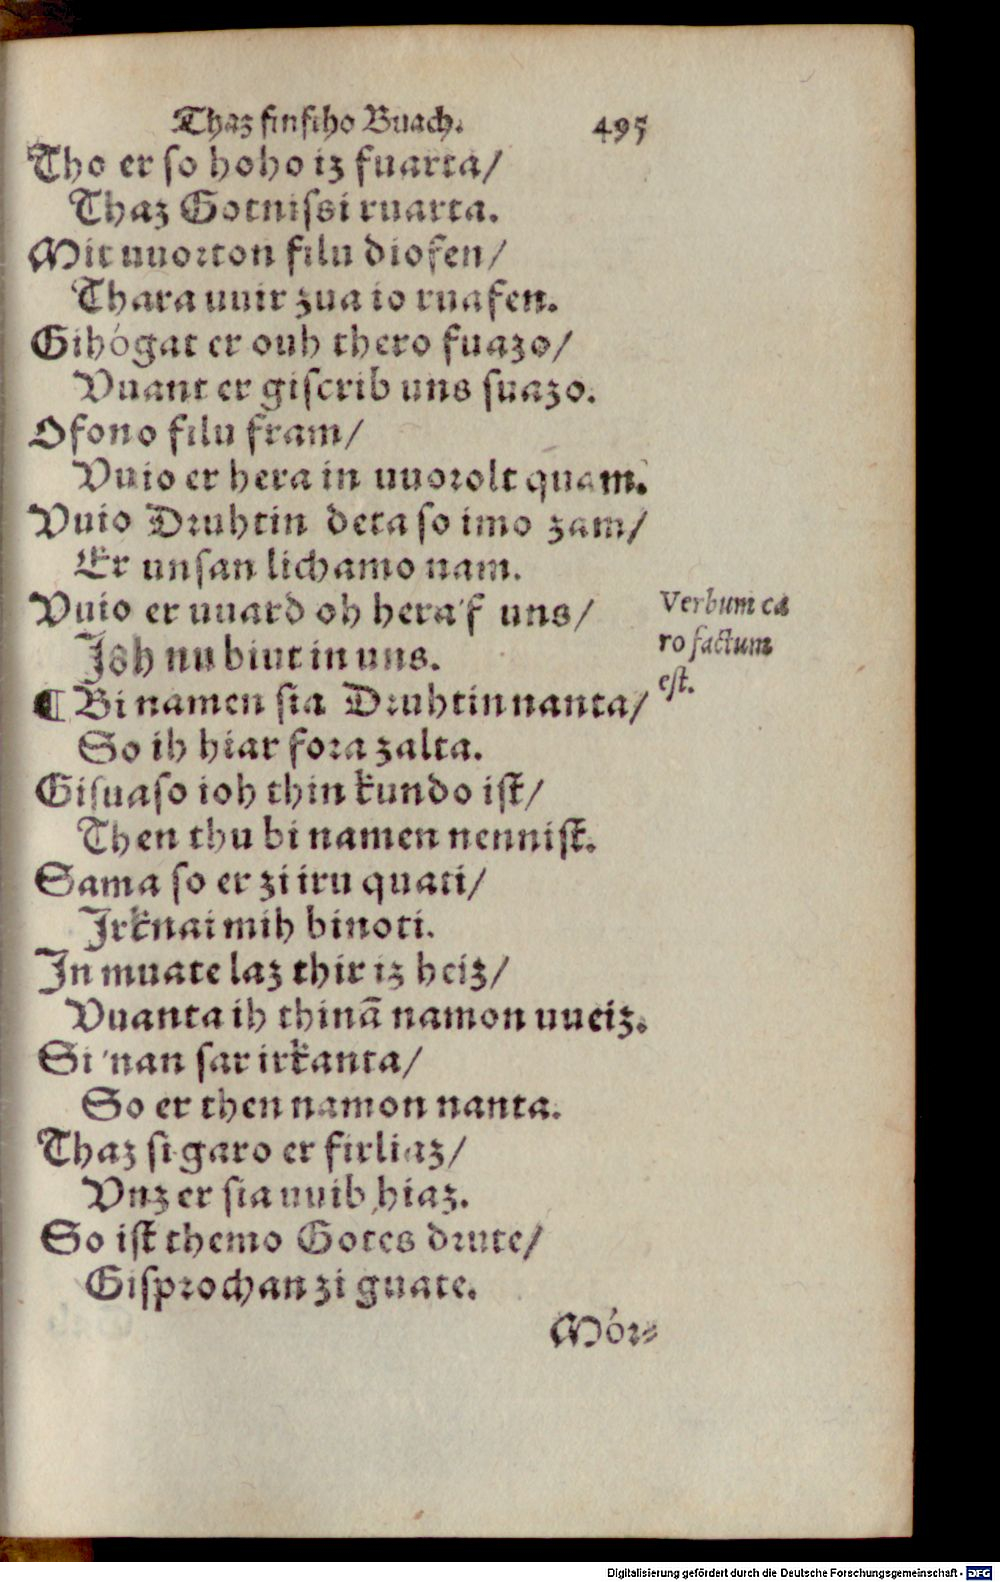 Thaz finfiho Buach. 495
Tho er so hoho iz fuarta/
Thaz Gotnissi ruarta.
Mit uuorton filu diofen/
Thara uuir zua io ruafen.
Gihógat er ouh thero fuazo/
Vuant er giscrib uns suazo.
Ofono filu fram/
Vuio er hera in uuorolt quam.
Vuio Druhtin deta so imo zam/
Er unsan lichamo nam.
Vuio er uuard oh hera'f uns/
Joh nu biut in uns.
¶ Bi namen sia Druhtin nanta/
So ih hiar fora zalta.
Gisuaso ioh thin kundo ist/
Then thu bi namen nennist.
Sama so er zi iru quati/
Irknai mih binoti.
In muate laz thir iz heiz/
Vuanta ih thinã namon uueiz.
Si 'nan sar irkanta/
So er then namon nanta.
Thaz si garo er firliaz/
Vnz er sia uuib hiaz.
So ist themo Gotes drute/
Gisprochan zi guate.
Mór⸗
Verbum ca
ro factum
est.
Digitalisierung gefördert durch die Deutsche Forschungsgemeinschaft - DFG